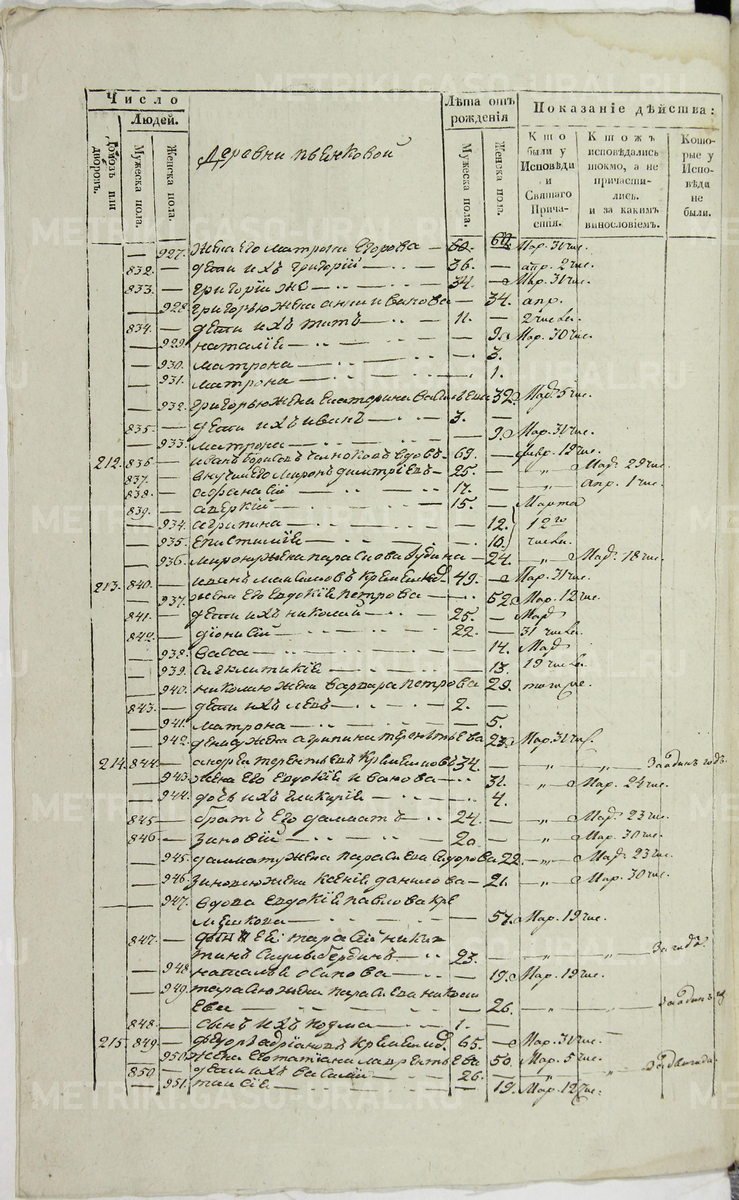 Число
Людей.
Домовъ или дворовъ.
Мужеска пола.
Женска пола.
Деревни пьянковой
Лѣта отъ рожденія
Мужеска пола.
Женска пола.
Показаніе дѣйства:
Кто были у Исповѣди и Святаго Причастія.
Ктожъ исповѣдались токмо, а не причастились. и за какимъ винословіемъ.
Которые у Исповѣди не были.
927. жена его матрона егорова 60. Мар. 31 чис.
832. дети ихъ григорій 36. апр. 2 чис.
833. григорій же 34. Мар. 31 чис.
928. григорью жена анна иванова 34. апр.
834. дети ихъ титъ 11. 2 числа
929. наталіе 9. Мар. 30 чис.
930. матрона 3.
931. матрона 1.
932. григорью жена екатерина 32. Мар. 5 чис.
835. дети ихъ иванъ 3.
933. матрона 9. Мар. 31 чис.
212. 836. иванъ борисовъ вдовъ 69. февр. 19 чис.
837. внучата его миронъ димитріевъ 25. „ Мар. 29 чис.
838. афанасій 17. „ апр. 1 чис.
839. аверкій 15. Марта
934. агрипина 12. 12го
935. епистиміе 10. числа
936. мирону жена парасковa 24. „ Мар. 18 чис.
213. 840. иванъ максимовъ 49. Мар. 31 чис.
937. жена его евдокіе петрова 52. Мар. 12 чис.
841. дети ихъ николай 25. Мар.
842. діонисій 22. 31 числа
938. васса 14. Мар.
939. сигклитикіе 13. 19 числа
940. николаю жена варвара петрова 29. тогоже.
843. дети ихъ левъ 2.
941. матрона 5.
942. жена агрипина терентьева 23. Мар. 31 чис.
214. 844. андрей терентьевъ 34. „ „ За одинъ годъ.
943. жена его евдокіе иванова 31. „ Мар. 24 чис.
944. дочь ихъ гликеріе 4.
845. братъ его далматъ 24. „ Мар. 23 чис.
846. зиновій 20. „ Мар. 30 чис.
945. далмату жена парасковa сидорова 22. „ Мар. 23 чис.
946. зиновью жена ксеніе данилова 21. „ Мар. 30 чис.
947. вдова евдокіе павлова кре
мешкова 57. Мар. 19 чис.
847. ея тарасій ники
тинъ 23. „ „ За годъ.
948. наталье осипова 19. Мар. 19 чис.
949. тарасью жена парасковa николае
ева 26. За одинъ годъ
848. сынъ ихъ козма 1.
215. 849. федоръ адріановъ 65. Мар. 31 чис.
950. жена его татіана лаврентьева 50. Мар. 5 чис.
850. дети ихъ василій 26. „ „ За два года.
951. таисіе 19. Мар. 12 чис.
METRIKI.GASO-URAL.RU